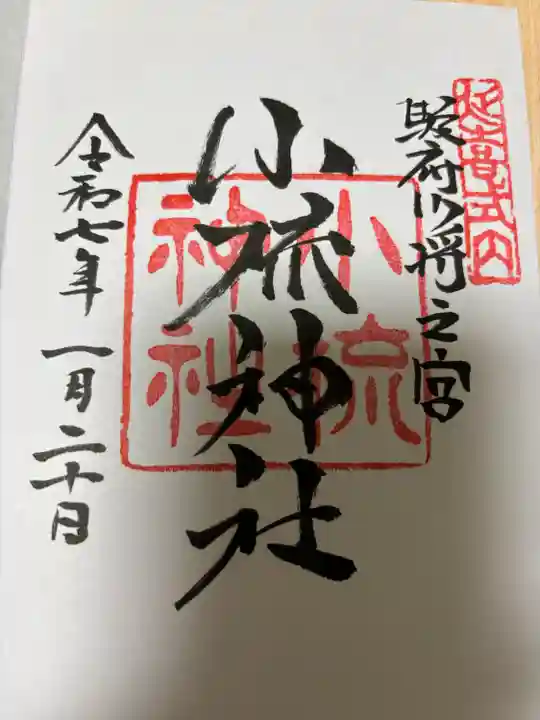 延喜式内
駿府御将之宮
小梳神社
小梳神社
令和七年 一月二十日